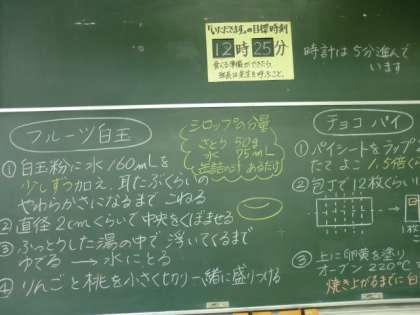 「いただきます」の目標時刻
12時25分
食べる準備ができたら
班長は先生を呼ぶこと。
時計は5分進んで
います
フルーツ白玉
①白玉粉に水160mLを
少しずつ加え、耳たぶくらいの
やわらかさになるまでこねる
②直径2cmくらいで中央をくぼませる
③ふっとうした湯の中で浮いてくるまで
ゆでる→水にとる
④りんごと桃を小さく切り一緒に盛りつける
シロップの分量
さとう 50g
水 75mL
缶詰の汁 あるだけ
チョコパイ
①パイシートをラップ
たてよこ1.5倍く
②包丁で12枚くらい
③上に卵黄を塗り
オーブン220℃
焼き上がるまでに白